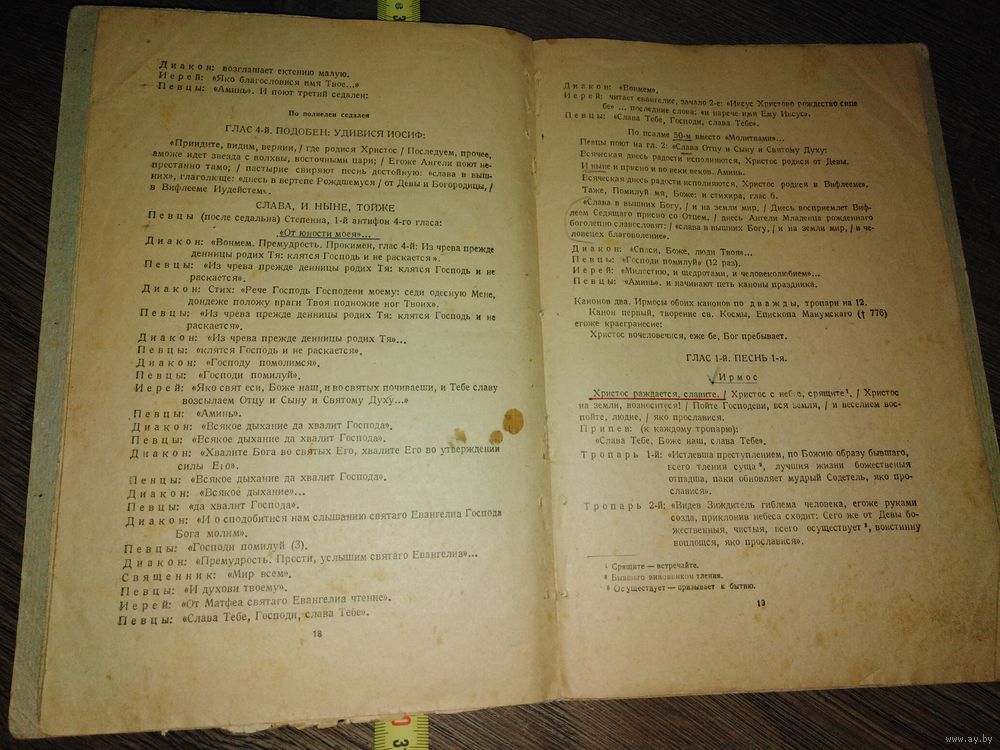 Диакон: возглашает ектению малую.
Иерей: «Яко благословися имя Твое...»
Певцы: «Аминь». И поют третий седален:
По полиелеи седален
ГЛАС 4-й. ПОДОБЕН: УДИВИСЯ ИОСИФ:
«Приидите, видим, вернии, / где родися Христос / Последуем, прочее,
аможе идет звезда с волхвы, восточными цари; / Егоже Ангели поют не-
престанно тамо; / пастырие свиряют песнь достойную: «слава в выш-
них», глаголюще: «днесь в вертепе Рождшемуся / от Девы и Богородицы, /
в Вифлееме Иудейстем».
СЛАВА, И НЫНЕ, ТОЙЖЕ
Певцы (после седальна) Степенна, 1-й антифон 4-го гласа:
«От юности моея»...
Диакон: «Вонмем. Премудрость. Прокимен, глас 4-й: Из чрева прежде
денницы родих Тя: клятся Господь и не раскается».
Певцы: «Из чрева прежде денницы родих Тя: клятся Господь и не
раскается».
Диакон: Стих: «Рече Господь Господеви моему: седи одесную Мене,
дондеже положу враги Твоя подножие ног Твоих».
Певцы: «Из чрева прежде денницы родих Тя: клятся Господь и не
раскается».
Диакон: «Из чрева прежде денницы родих Тя»...
Певцы: «клятся Господь и не раскается».
Диакон: «Господу помолимся».
Певцы: «Господи помилуй».
Иерей: «Яко свят еси, Боже наш, и во святых почиваеши, и Тебе славу
возсылаем Отцу и Сыну и Святому Духу...»
Певцы: «Аминь».
Диакон: «Всякое дыхание да хвалит Господа».
Певцы: «Всякое дыхание да хвалит Господа».
Диакон: «Хвалите Бога во святых Его, хвалите Его во утверждении
силы Его».
Певцы: «Всякое дыхание да хвалит Господа».
Диакон: «Всякое дыхание»...
Певцы: «да хвалит Господа».
Диакон: «И о сподобитися нам слышанию святаго Евангелиа Господа
Бога молим».
Певцы: «Господи помилуй (3).
Диакон: «Премудрость. Прости, услышим святаго Евангелиа»...
Священник: «Мир всем».
Певцы: «И духови твоему».
Иерей: «От Матфеа святаго Евангелиа чтение».
Певцы: «Слава Тебе, Господи, слава Тебе».
18
Диакон: «Вонмем».
Иерей: читает евангелие, зачало 2-е: «Иисус Христово рождество сице
бе» ... последние слова: «и нарече имя Ему Иисус».
Певцы: «Слава Тебе, Господи, слава Тебе».
По псалме 50-м вместо «Молитвами»...
Певцы поют на гл. 2: «Слава Отцу и Сыну и Святому Духу:
Всяческая днесь радости исполняются, Христос родися от Девы.
И ныне и присно и во веки веков. Аминь.
Всяческая днесь радости исполняются, Христос родися в Вифлееме».
Таже, Помилуй мя, Боже: и стихира, глас 6.
«Слава в вышних Богу, / и на земли мир. / Днесь восприемлет Виф-
леем Седящаго присно со Отцем, / днесь Ангели Младенца рожденнаго
боголепно славословят: / «слава в вышних Богу, / и на земли мир, / в че-
ловецех благоволение».
Диакон: «Спаси, Боже, люди Твоя»...
Певцы: «Господи помилуй» (12 раз).
Иерей: «Милостию, и щедротами, и человеколюбием»...
Певцы: «Аминь». и начинают петь каноны праздника.
Канонов два. Ирмосы обоих канонов по дважды, тропари на 12.
Канон первый, творение св. Космы, Епископа Маиумскаго († 776)
егоже краегранесие:
Христос вочеловечися, еже бе, Бог пребывает.
ГЛАС 1-й. ПЕСНЬ 1-я.
Ирмос
Христос раждается, славите. / Христос с небес, срящите¹. / Христос
на земли, возноситеся! / Пойте Господеви, вся земля, / и веселием вос-
пойте, людие, / яко прославися.
Припев: (к каждому тропарю):
«Слава Тебе, Боже наш, слава Тебе».
Тропарь 1-й: «Истлевша преступлением, по Божию образу бывшаго,
всего тления суща², лучшия жизни божественыя
отпадша, паки обновляет мудрый Содетель, яко про-
славися».
Тропарь 2-й: «Видев Зиждитель гиблема человека, егоже руками
созда, приклонив небеса сходит: Сего же от Девы бо-
жественныя, чистыя, всего осуществует³, воистинну
воплощся, яко прославися».
¹ Срящите — встречайте.
² Бывшаго виновником тления.
³ Осуществует — призывает к бытию.
19
www.ay.by